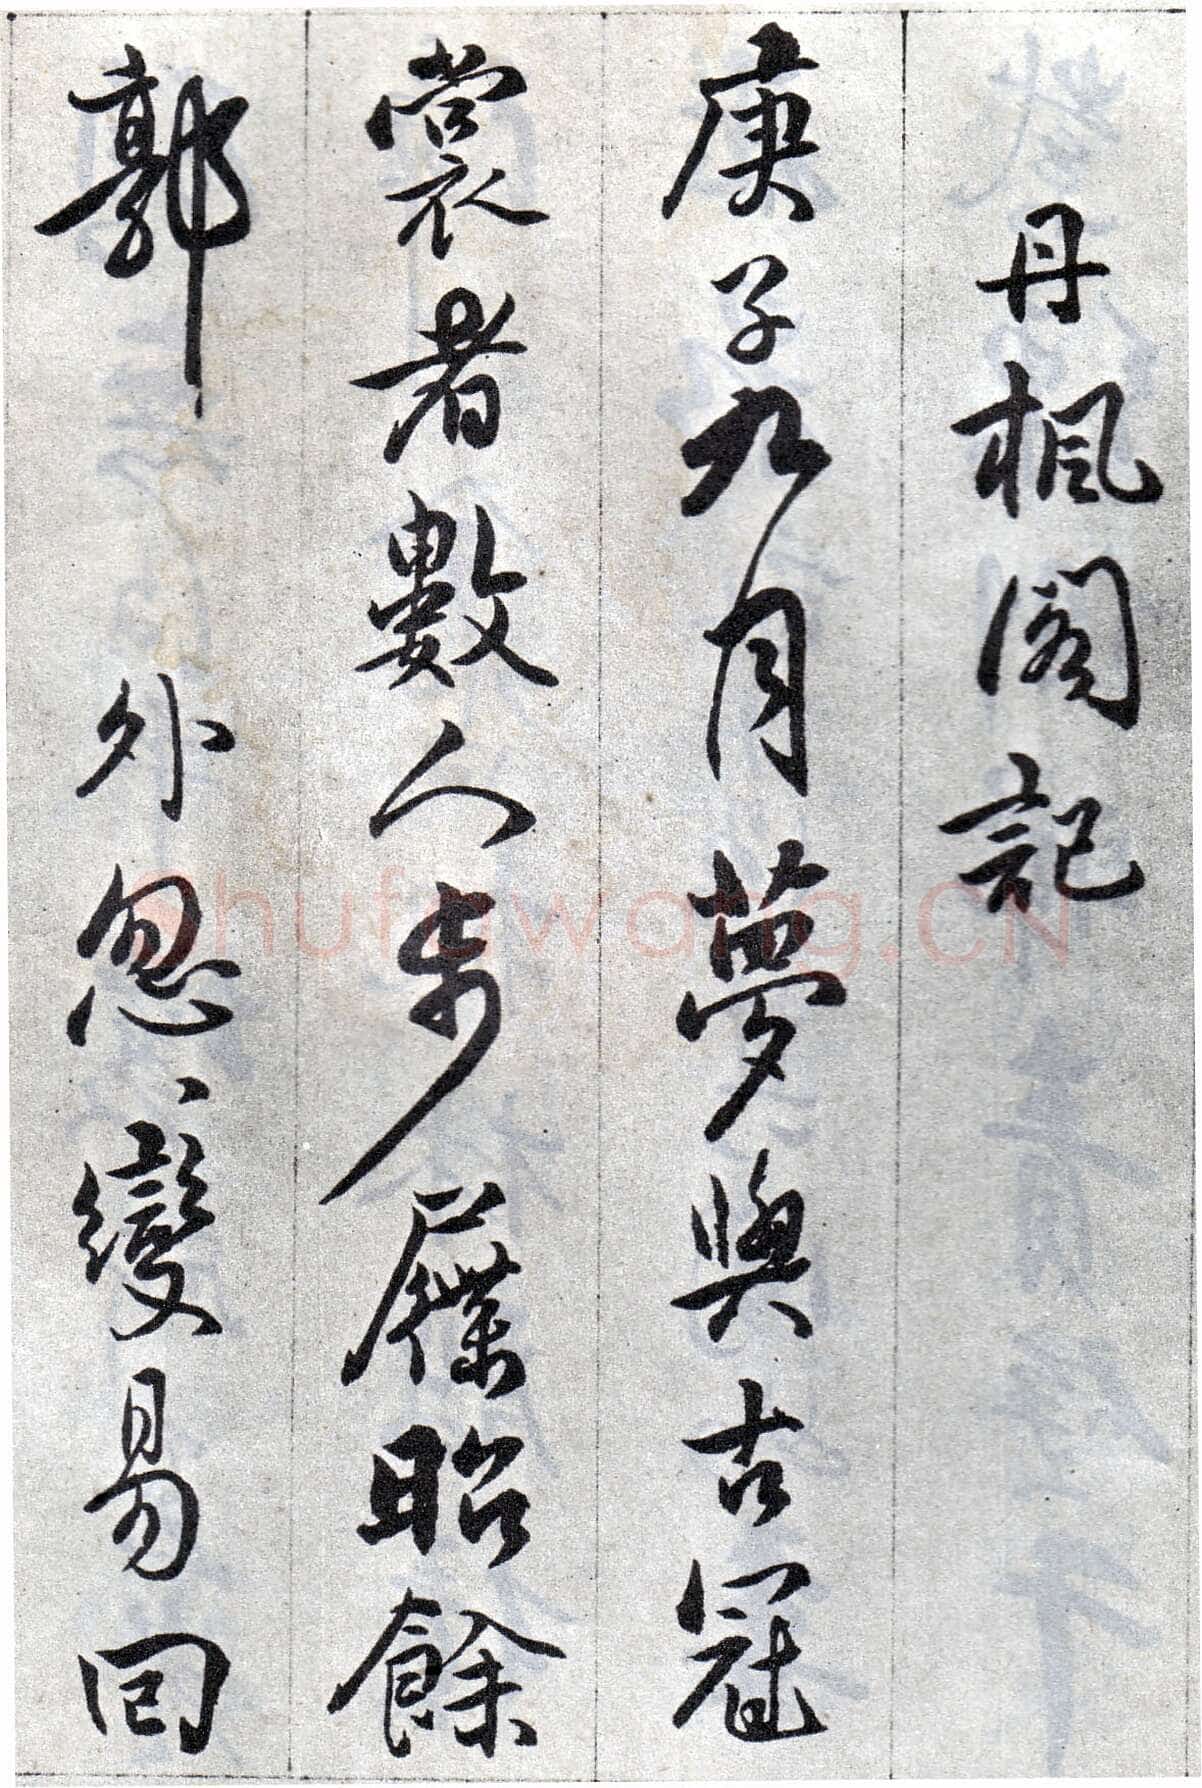 丹楓閣記
庚子九月夢與古冠
裳者數人步屧昭餘
郭外忽變易回
Shufawang.CN